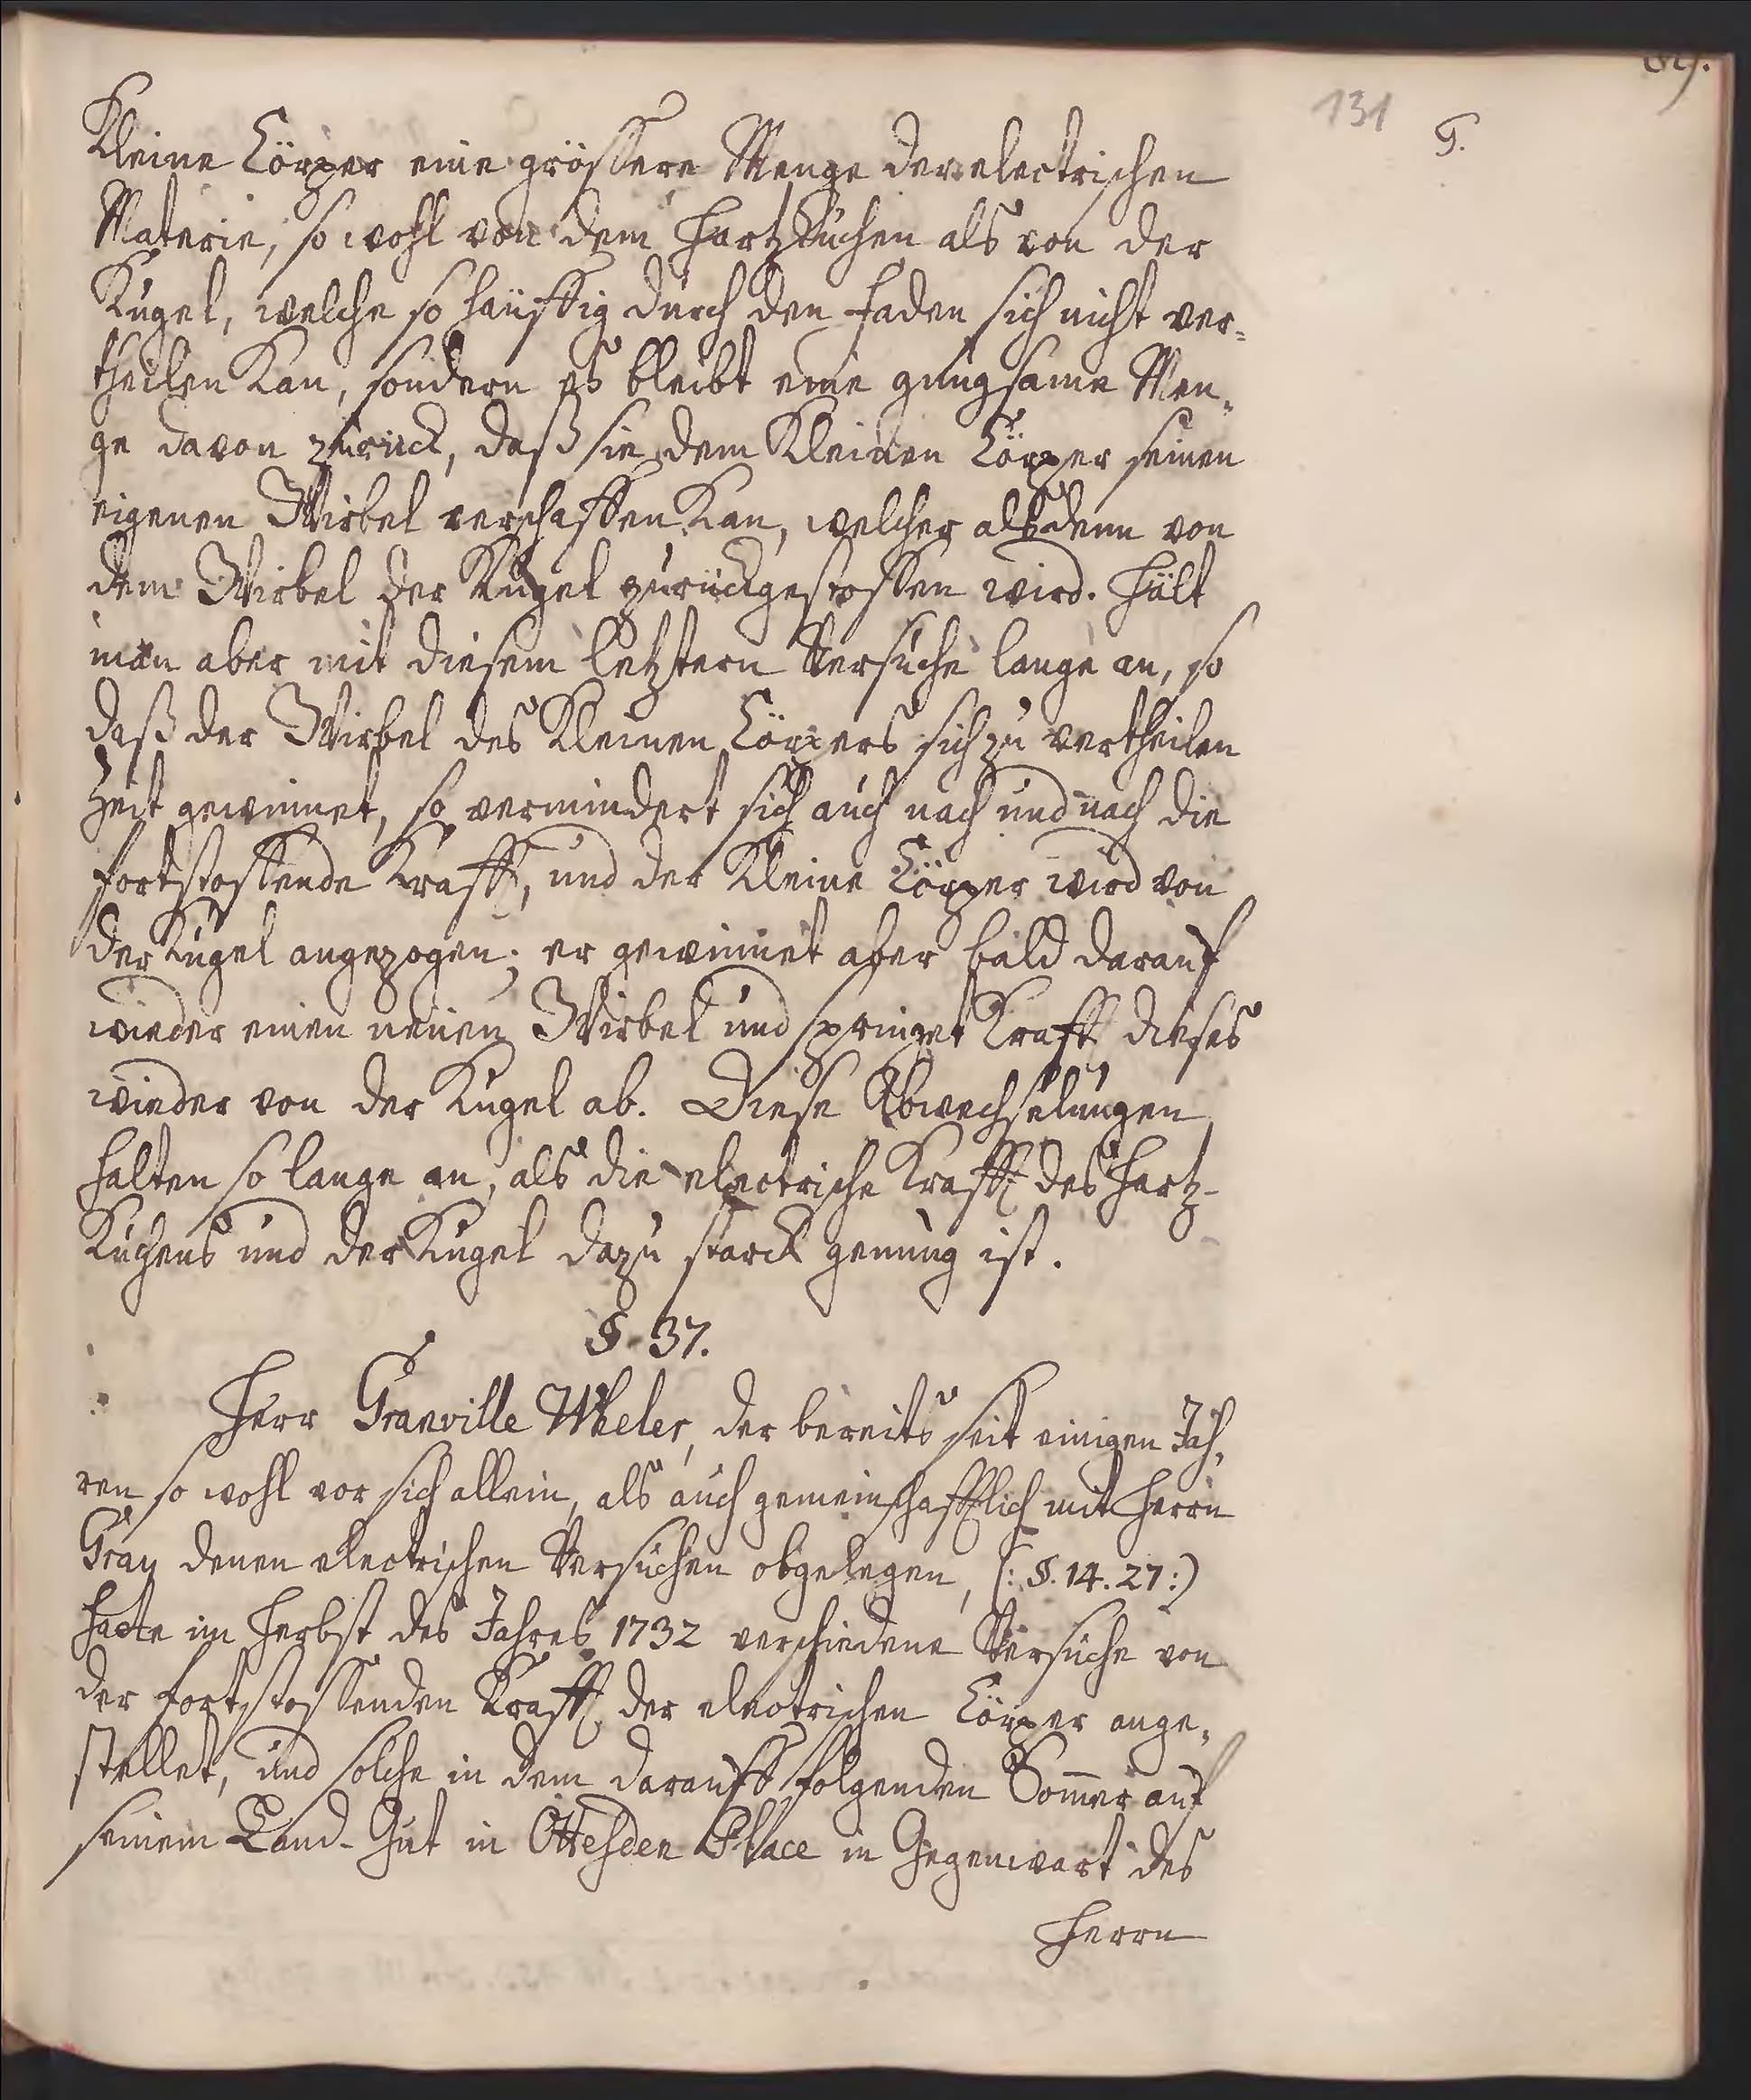 131
G.
kleine Cörper eine grössere Menge der electrischen
Materie, so wohl von dem Hartzkuchen als von der
Kugel, welche so häuffig durch den Faden sich nicht ver-
theilen kan, sondern es bleibt eine gnugsame Men-
ge davon zurück, daß sie dem kleinen Cörper seinen
eigenen Wirbel verschaffen kan, welcher alßdenn von
dem Wirbel der Kugel zurückgestossen wird. Hält
man aber mit diesem letztern Versuche lange an, so
daß der Wirbel des kleinen Cörpers sich zu vertheilen
Zeit gewinnet, so vermindert sich auch nach und nach die
fortstossende Krafft, und der kleine Cörper wird von
der Kugel angezogen; er gewinnet aber bald darauf
wieder einen neuen Wirbel und springet Krafft dieses
wieder von der Kugel ab. Diese Abwechselungen
halten so lange an, als die electrische Krafft des Hartz-
Kuchens und der Kugel dazu starck genung ist.
§. 37.
Herr Granville Wheler, der bereits seit einigen Jah-
ren so wohl vor sich allein, als auch gemeinschafftlich mit Herrn
Gray denen electrischen Versuchen obgelegen, (: §. 14. 27:)
hatte im Herbst des Jahres 1732 verschiedene Versuche von
der fortstossenden Krafft der electrischen Cörper ange-
stellet, und solche in dem darauff folgenden Som̄er auf
seinem Land-Gut in Ottehden Place in Gegenwart des
Herrn